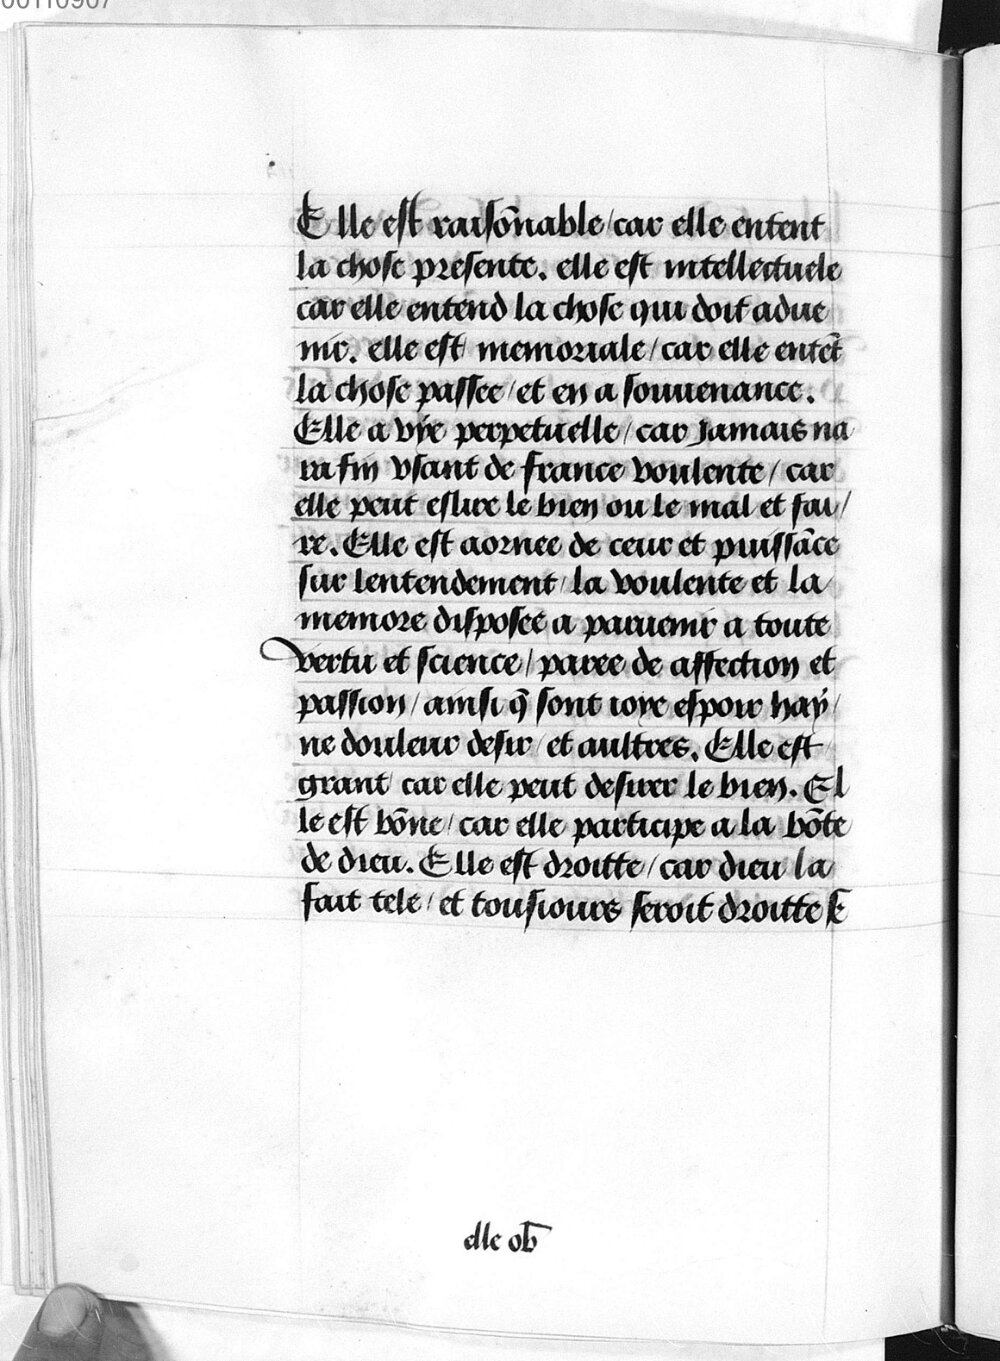 00110907
Elle est raisōnable/car elle entent
la chose presente. elle est intellectuele
car elle entend la chose qui doit adue
nir. elle est memoriale/car elle entēt
la chose passee/et en a souuenance.
Elle a vÿe perpetuelle/car jamais na
ra fin vsant de france voulente/car
elle peut eslire le bien ou le mal et fai/
re. Elle est aornee de ceur et puissāce
sur lentendement/la voulente et la
memore disposee a paruenir a toute
vertu et science/paree de affection et
passion/ainsi q̄ sont ioye espoir haÿ/
ne douleur desir/et aultres. Elle est
grant/car elle peut desirer le bien. El
le est bōne/car elle participe a la bōte
de dieu. Elle est droitte/car dieu la
fait tele/et tousiours seroit droitte se
elle ob